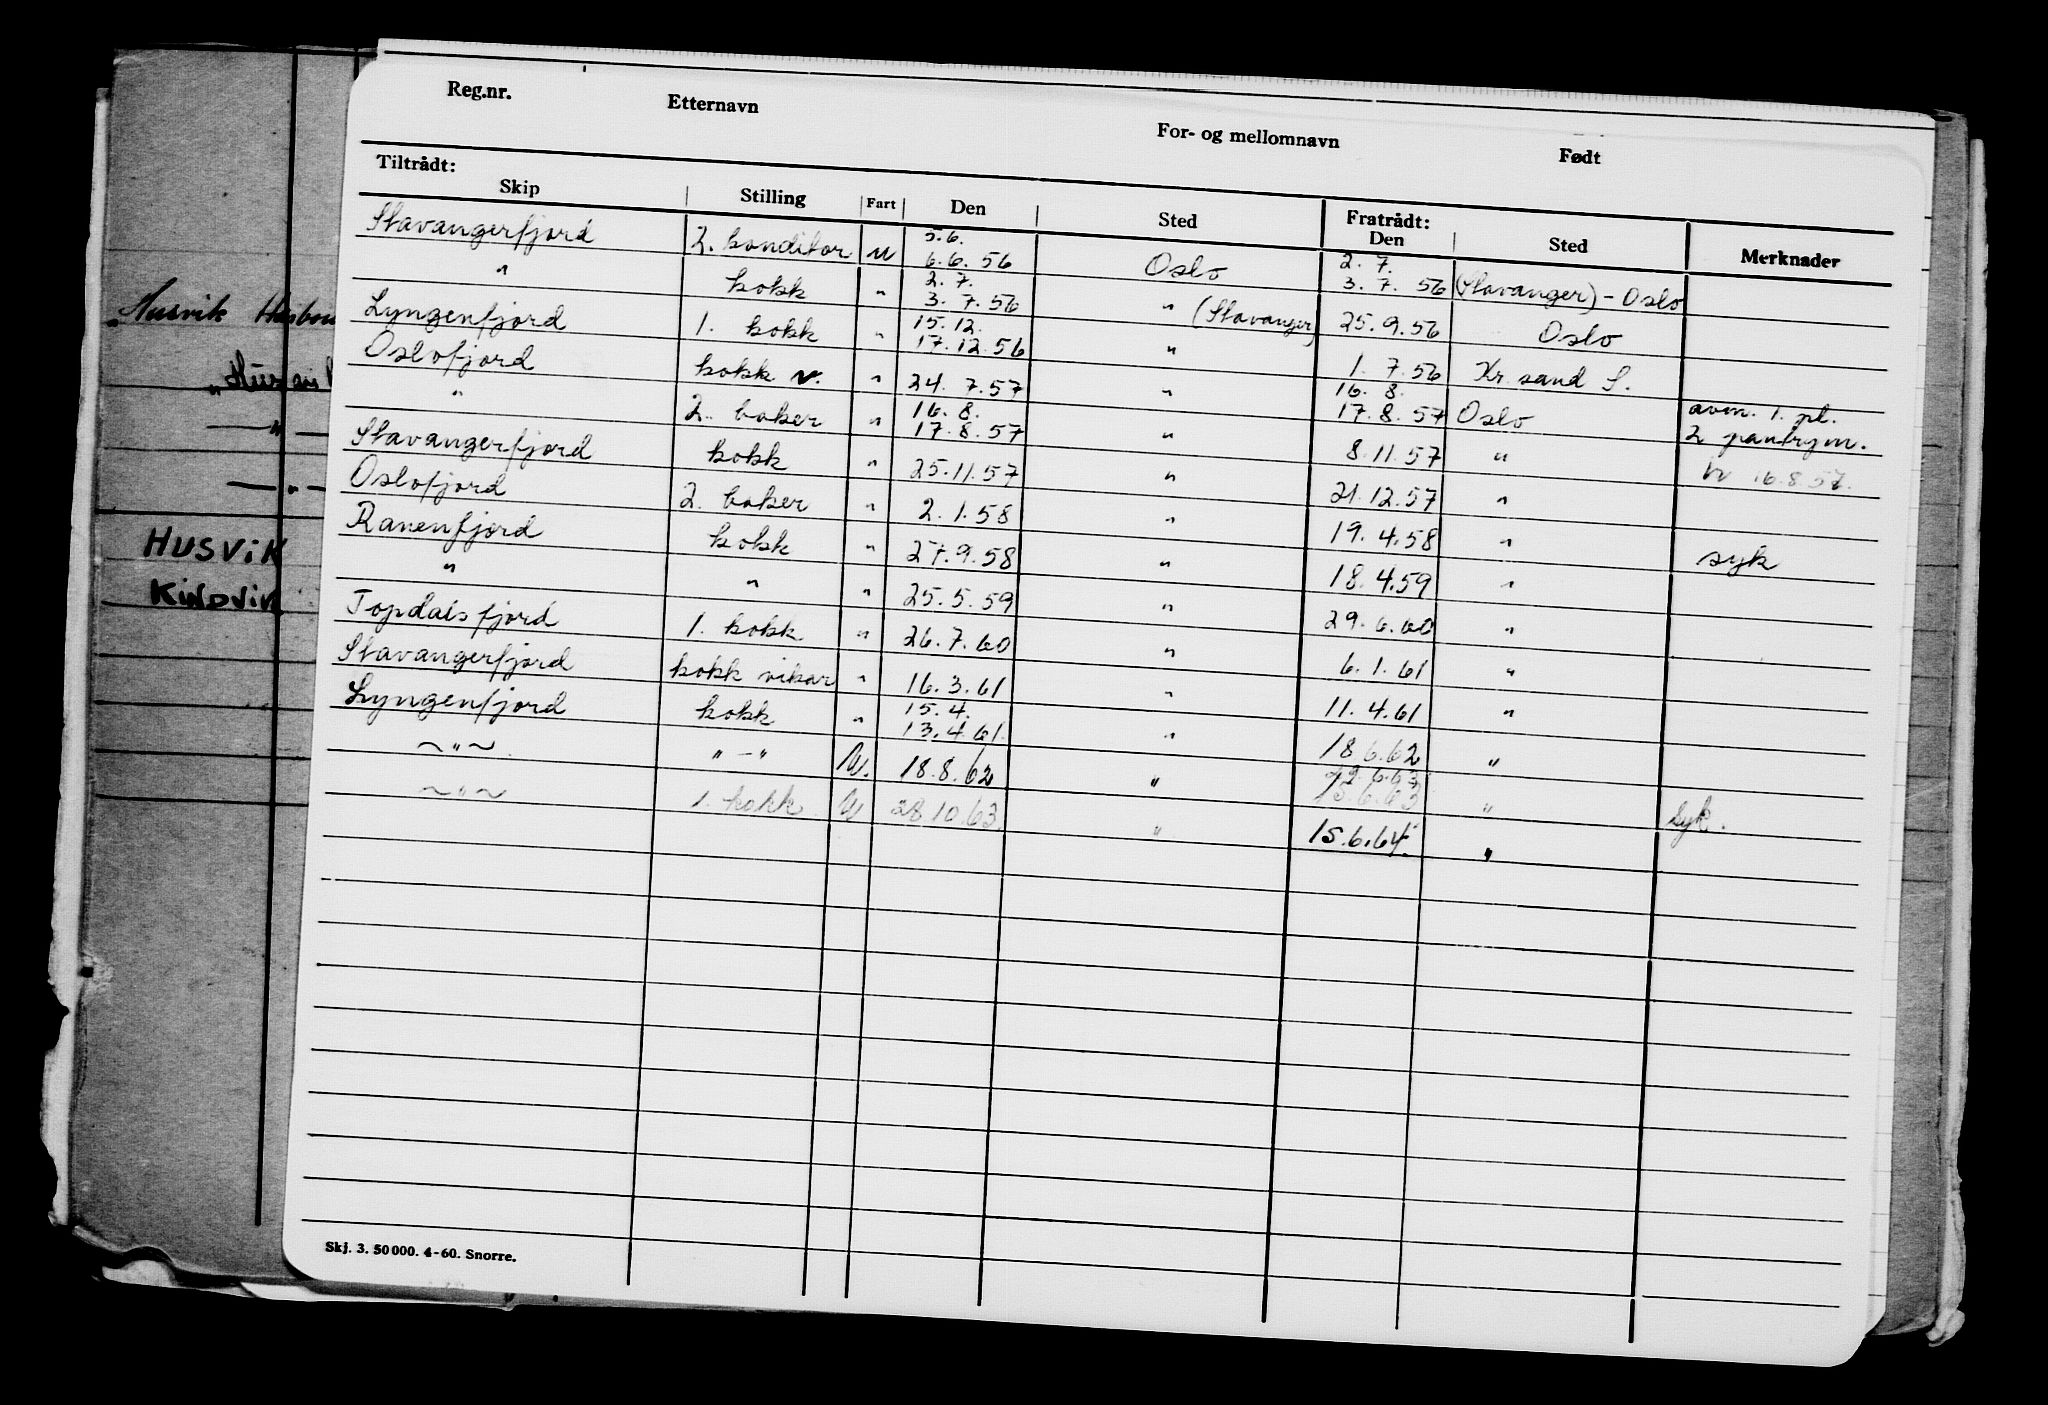 Reg.nr. Etternavn For- og mellomnavn Født
Tiltrådt: Fratrådt:
Skip Stilling Fart Den Sted Den Sted Merknader
Stavangerfjord 2. konditor u 5.6. 6.6.56 Oslo 2.7. 3.7.56 (Stavanger) - Oslo
" kokk " 2.7. 3.7.56 " (Stavanger) 25.9.56 Oslo
Lyngenfjord 1. kokk " 15.12. 17.12.56 " 1.7.56 Kr.sand S.
Oslofjord kokk v. " 24.7.57 " 16.8. 17.8.57 Oslo avm. 1. pl. 2 pantrym.
" 2. baker " 16.8. 17.8.57 " 8.11.57 " 16.8.57.
Stavangerfjord kokk " 25.11.57 " 21.12.57 "
Oslofjord 2. baker " 2.1.58 " 19.4.58 " syk
Ranenfjord kokk " 27.9.58 " 18.4.59 "
" " " 25.5.59 " 29.6.60 "
Topdalsfjord 1. kokk " 26.7.60 " 6.1.61 "
Stavangerfjord kokk vikar " 16.3.61 " 11.4.61 "
Lyngenfjord kokk " 15.4. 13.4.61. " 18 6.62 "
~"~ "-" U. 18.8.62 " 15.6.63 " Syk.
~"~ 1. kokk U 28.10.63. " 15.6.64. "
Skj. 3. 50 000. 4-60. Snorre.
Husvik
"
"
HUSVIK
KINDVIK